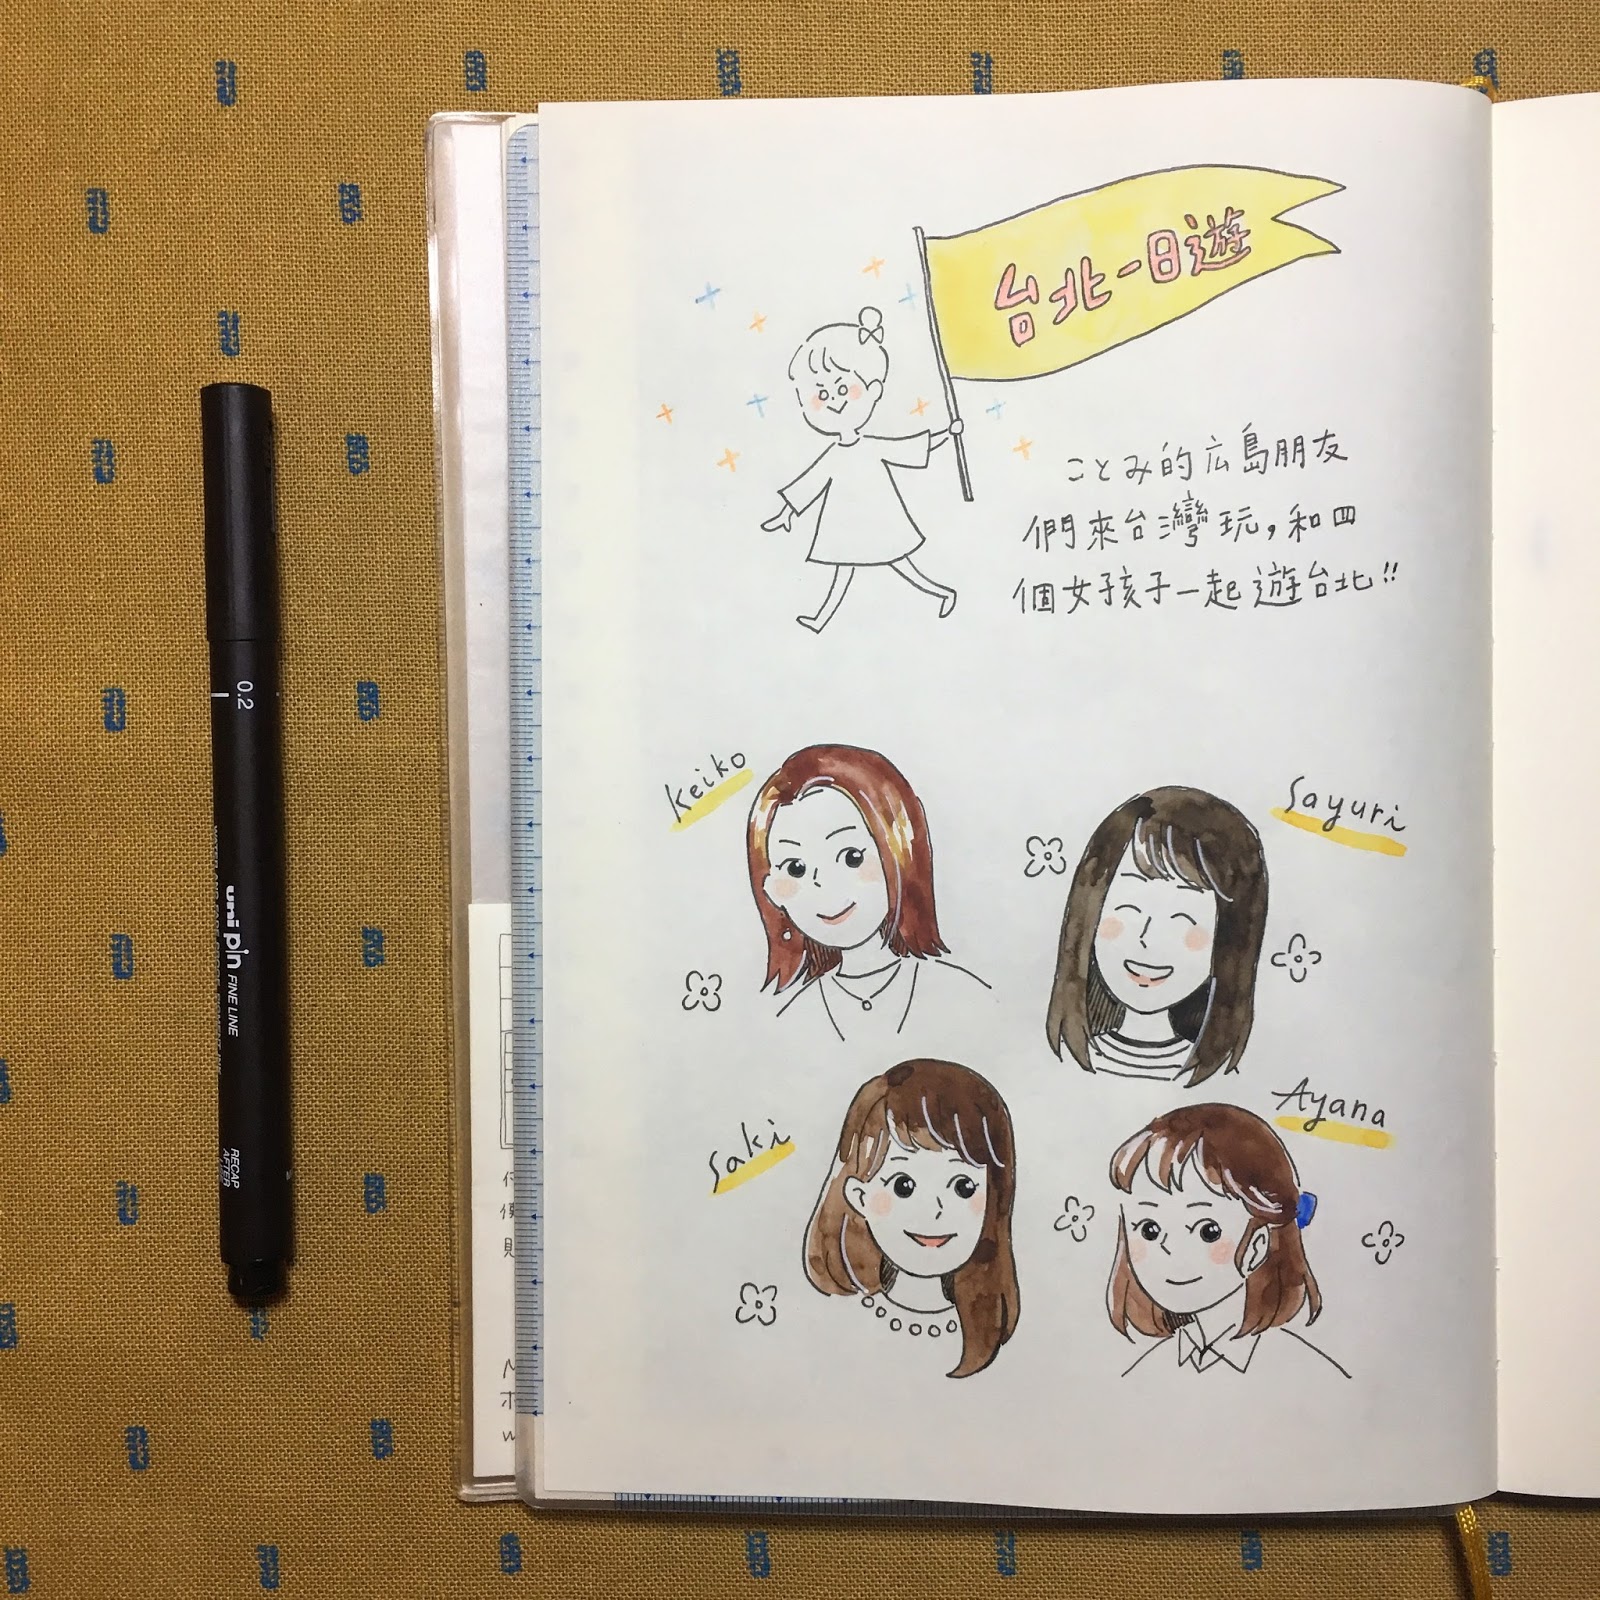 台北一日遊
ことみ的広島朋友
們來台灣玩，和四
個女孩子一起遊台北!!
Keiko
Sayuri
Saki
Ayana
0.2
uni pin FINE LINE
RECAP
AFTER